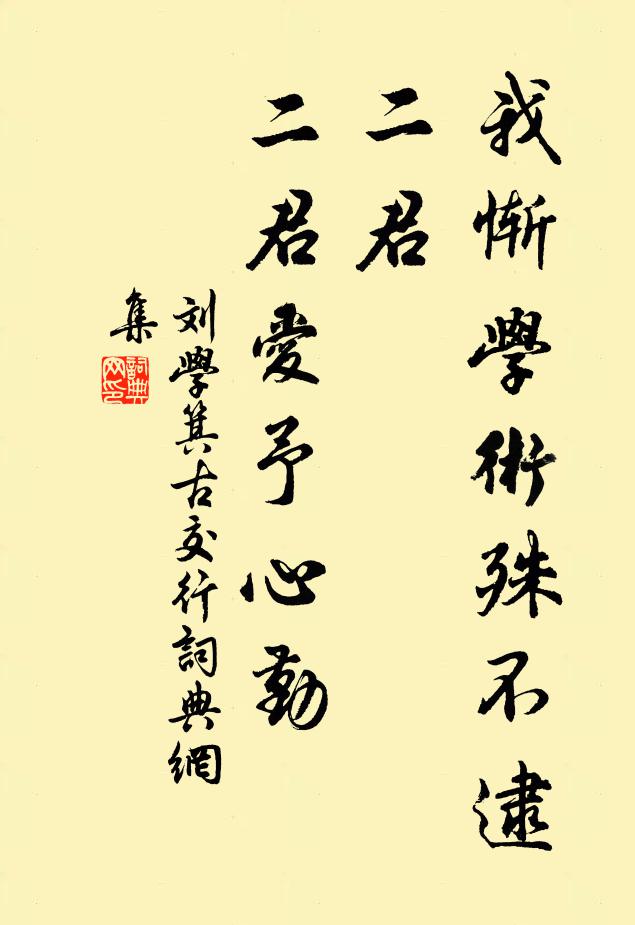 我慚學術殊不逮
二君
二君愛予心勤
刘學箕古交行詞典網
集
詞典
网印